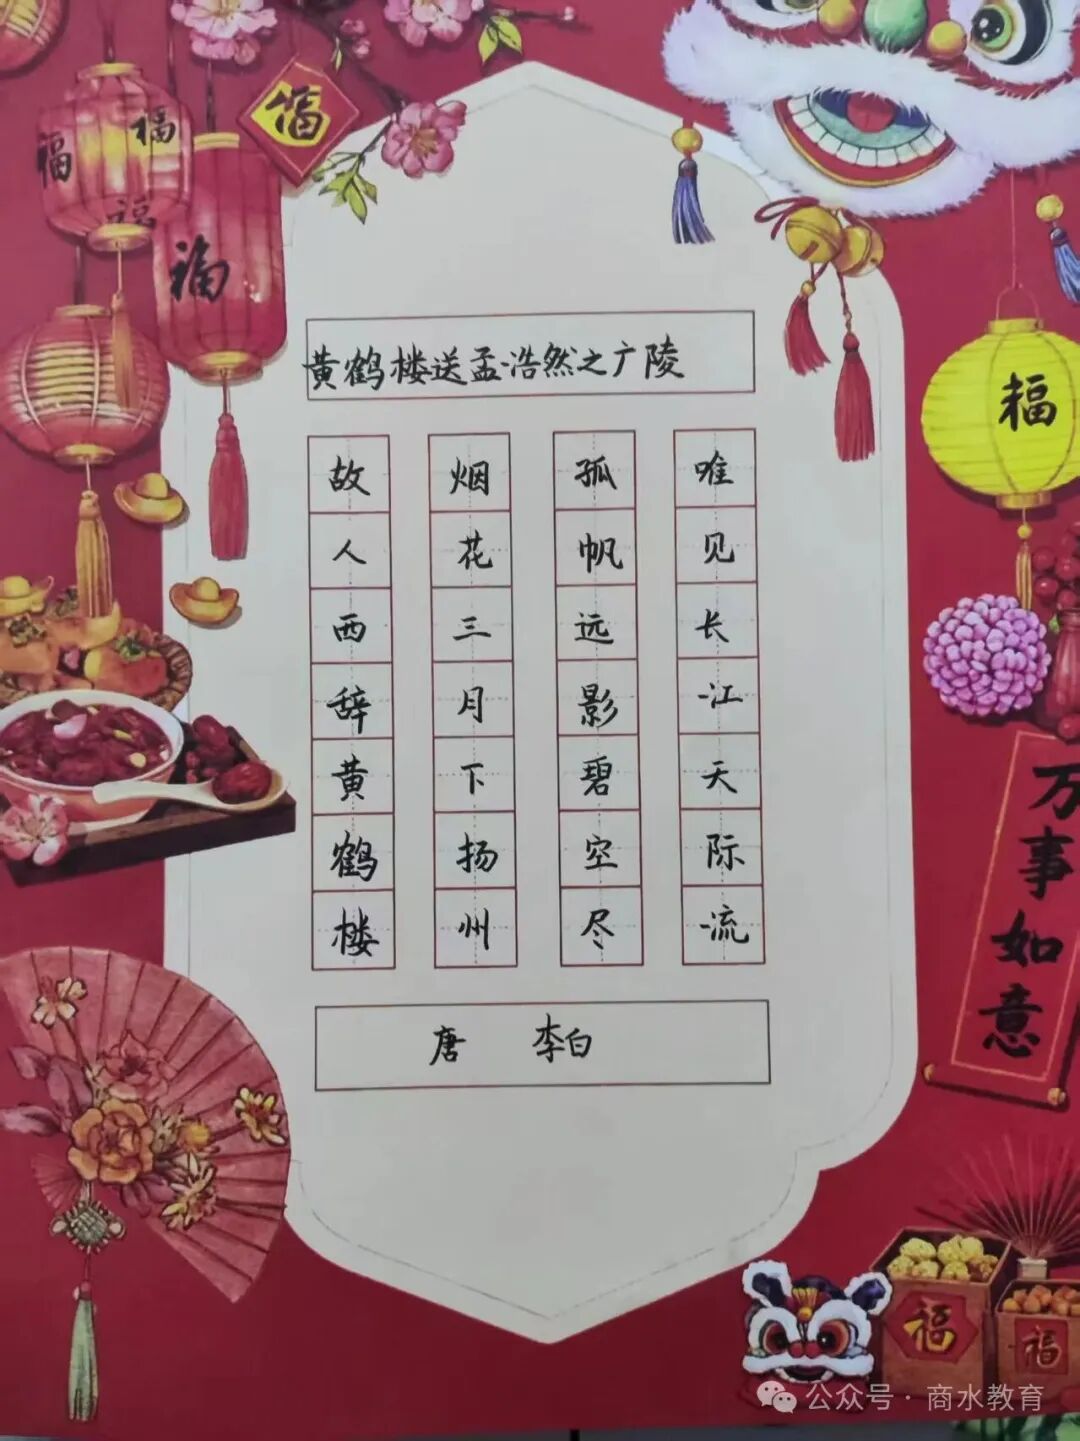 福
福
福
福
福
黄鹤楼送孟浩然之广陵
故人西辞黄鹤楼
烟花三月下扬州
孤帆远影碧空尽
唯见长江天际流
唐 李白
福
万事如意
福
福
公众号·商水教育